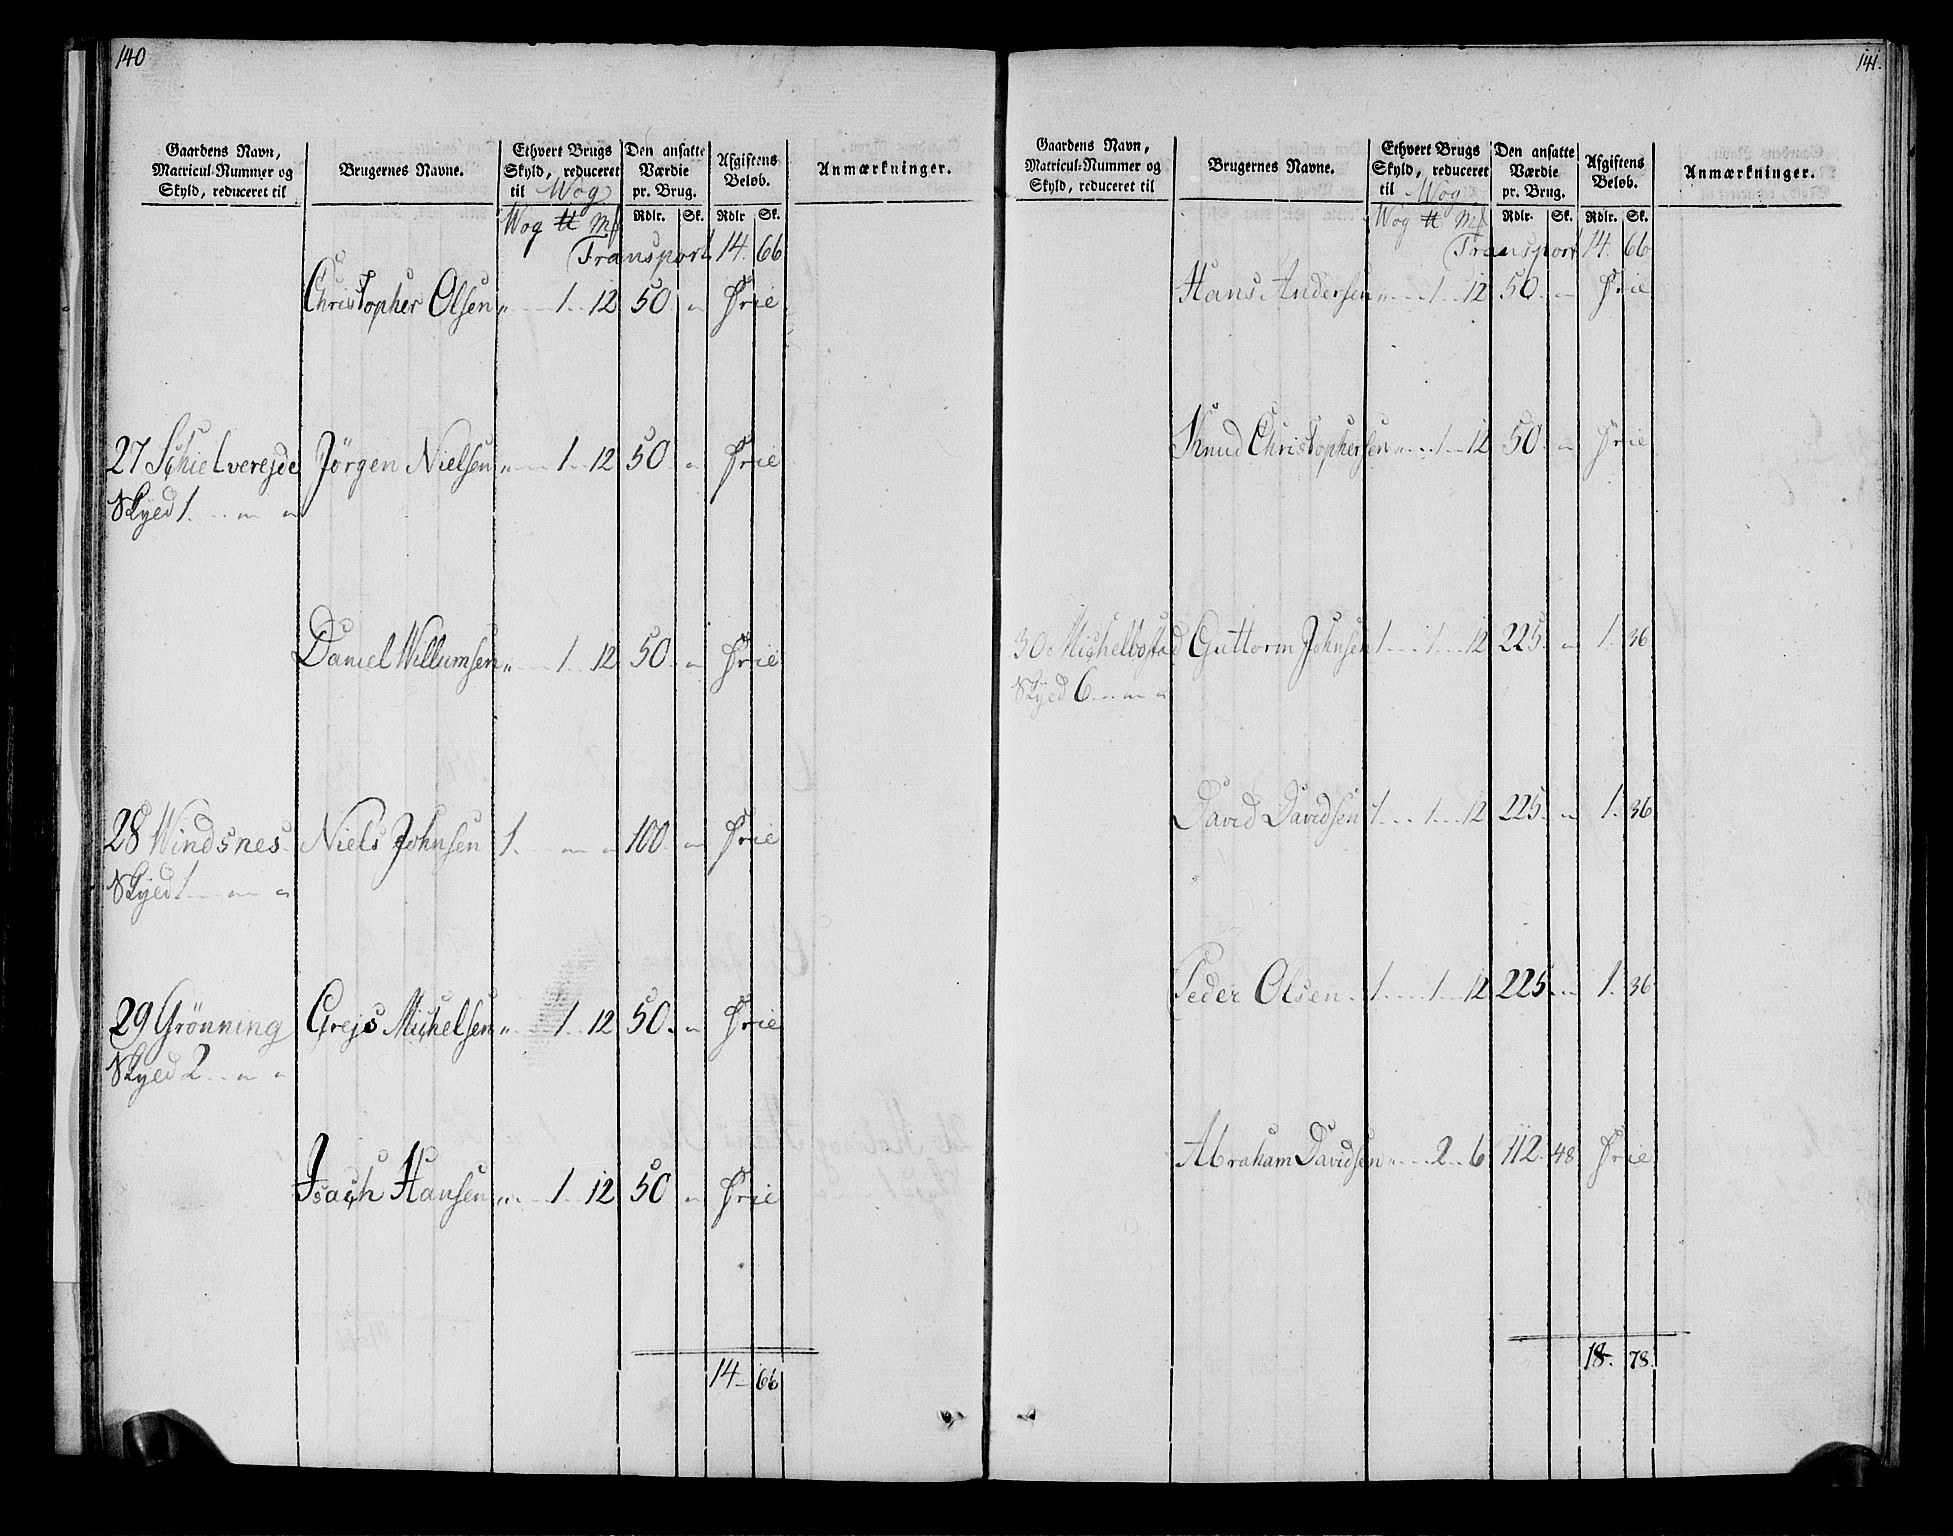 140
Gaardens Navn, Matricul-Nummer og Skyld, reduceret til
Brugernes Navne.
Ethvert Brugs Skyld, reduceret til Wog
Den ansatte Værdie pr. Brug.
Afgiftens Beløb.
Anmærkninger.
Wog ℔ Mk Rdlr. Sk. Rdlr Sk.
Transport 14. 66
Christopher Olsen „ 1 12 50 „ Frie
27 Schielverejde Jörgen Nielsen „ 1 12 50 „ Frie
Skyed 1 „ „
Daniel Willumsen „ 1 12 50 „ Frie
28 Windsnes Niels Johnsen 1 „ „ 100 „ Frie
Skyed 1 „ „
29 Grönning Grejs Michelsen „ 1 12 50 „ Frie
Skyed 2 „ „
Isach Hansen „ 1 12 50 „ Frie
14 66
141.
Gaardens Navn, Matricul-Nummer og Skyld, reduceret til
Brugernes Navne.
Ethvert Brugs Skyld, reduceret til Wog
Den ansatte Værdie pr. Brug.
Afgiftens Beløb.
Anmærkninger.
Wog ℔ Mk Rdlr. Sk. Rdlr. Sk.
Transport 14. 66
Hans Andersen „ 1 12 50 „ Frie
Knud Christophersen „ 1 12 50 „ Frie
30 Michelbostad Guttorm Johnsen 1 1 12 225 „ 1. 36
Skyed 6 „ „
David Davidsen 1 1 12 225 „ 1. 36
Peder Olsen 1 1 12 225 „ 1. 36
Abraham Davidsen „ 2 6 112 48 Frie
18. 78.